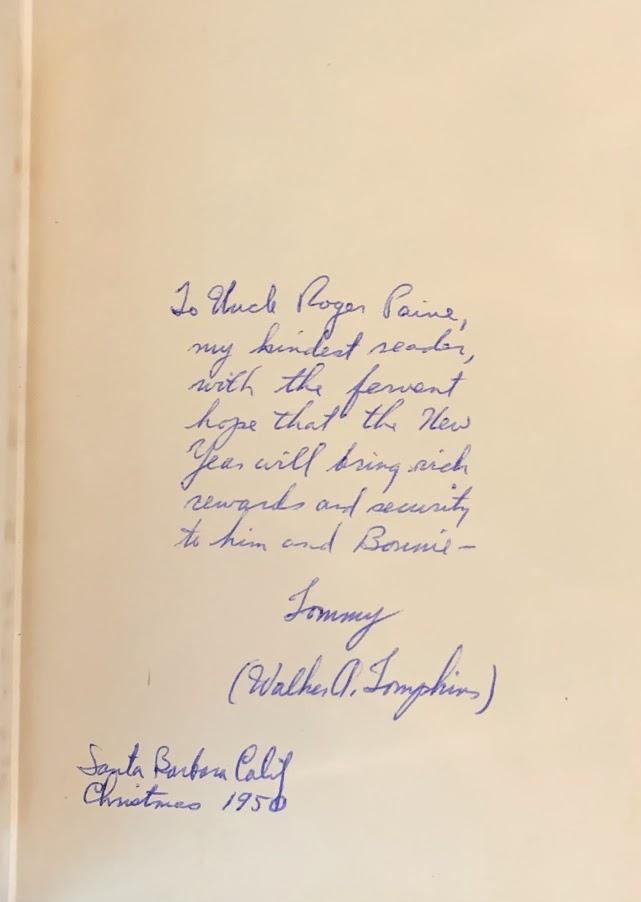 To Uncle Roger Paine,
my kindest reader,
with the fervent
hope that the New
Year will bring rich
rewards and security
to him and Bonnie—
Tommy
(Walker A. Tompkins)
Santa Barbara Calif
Christmas 1950